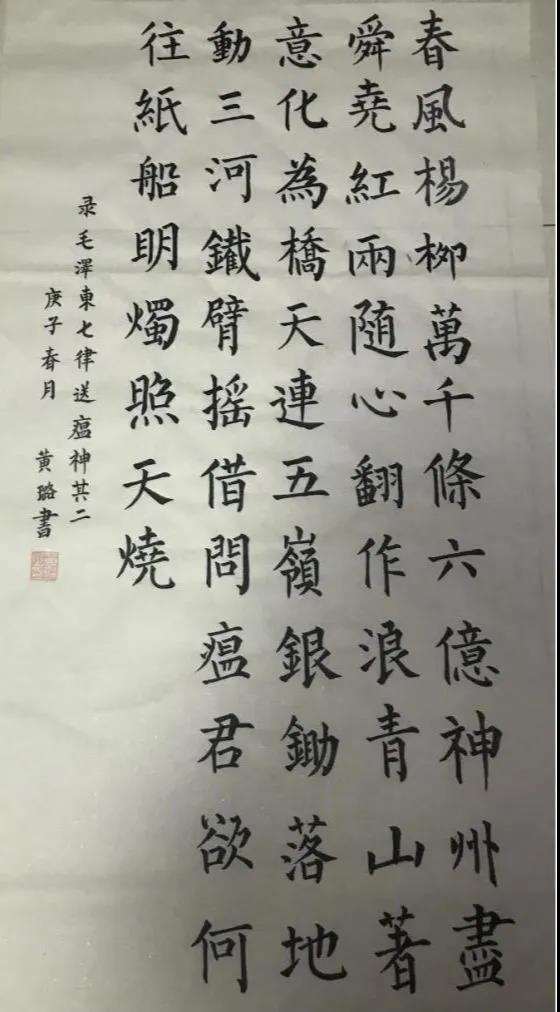 春風楊柳萬千條六億神州盡
舜堯紅兩随心翻作浪青山著
意化為橋天連五嶺銀鋤落地
動三河鐵臂摇借問瘟君欲何
往紙船明燭照天燒
录毛澤東七律送瘟神其二
庚子春月 黄璐書